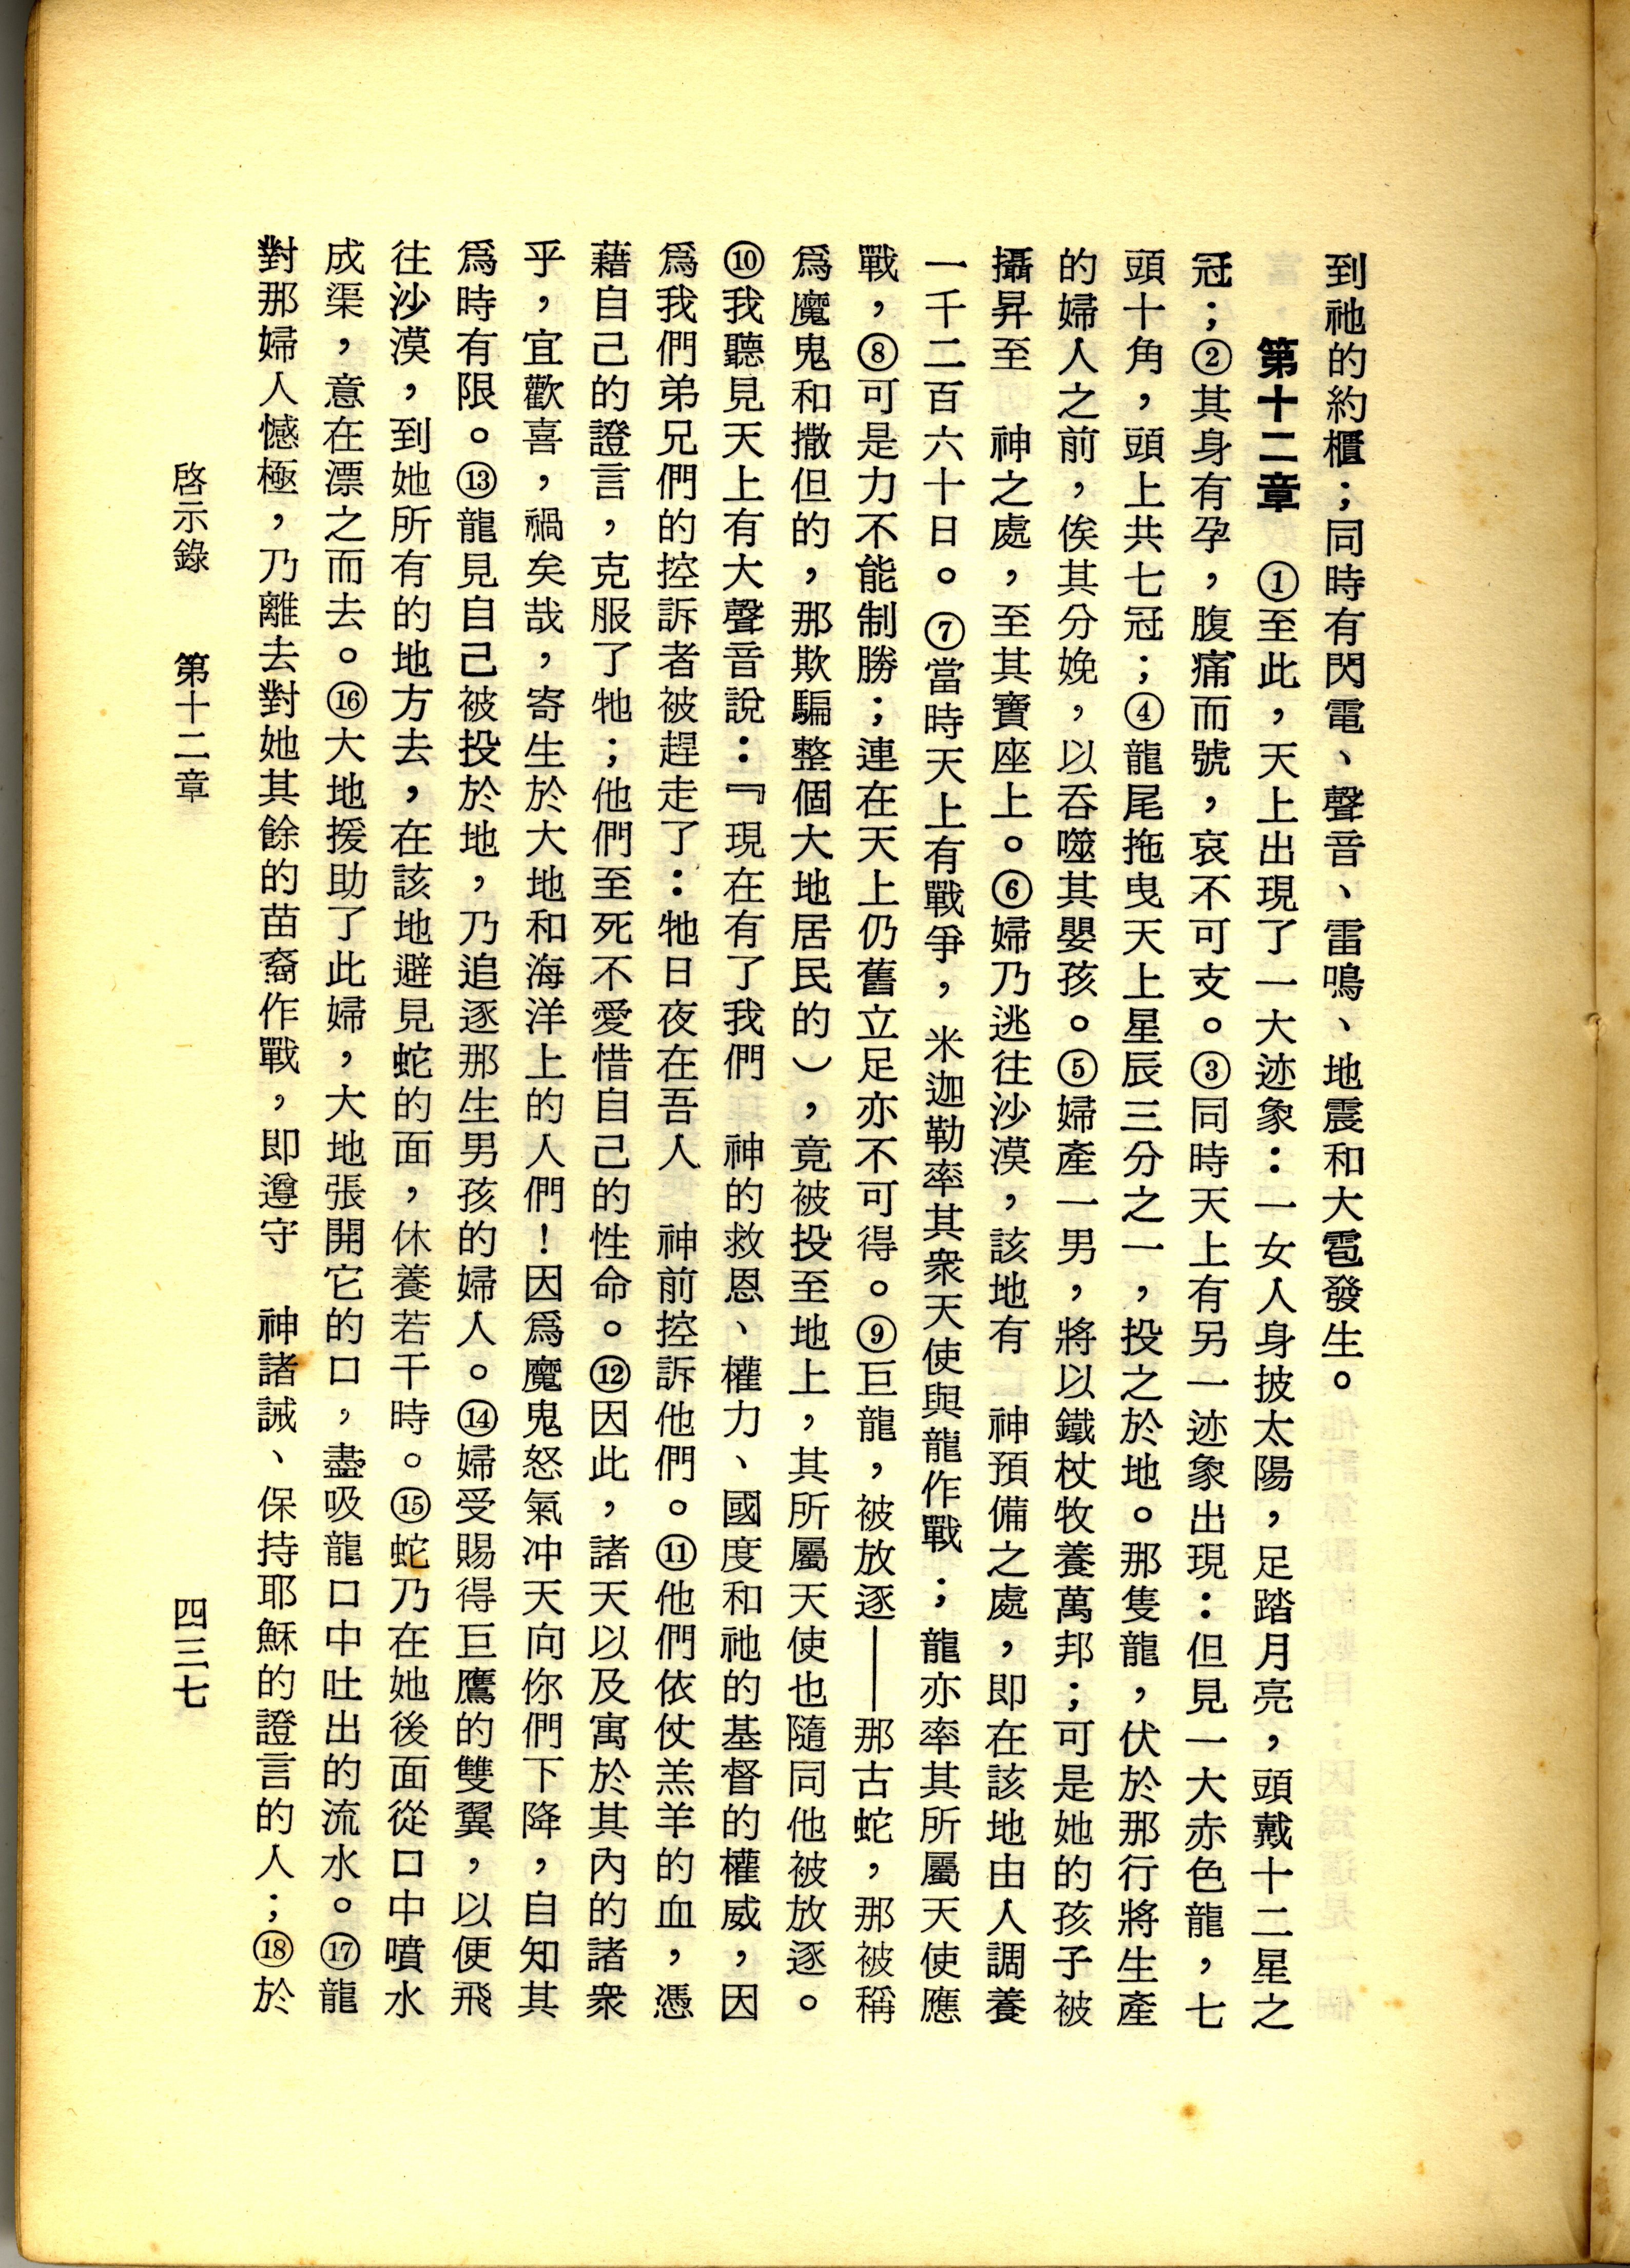 到祂的約櫃；同時有閃電、聲音、雷鳴、地震和大雹發生。
第十二章　①至此，天上出現了一大迹象：一女人身披太陽，足踏月亮，頭戴十二星之
冠；②其身有孕，腹痛而號，哀不可支。③同時天上有另一迹象出現：但見一大赤色龍，七
頭十角，頭上共七冠；④龍尾拖曳天上星辰三分之一，投之於地。那隻龍，伏於那行將生產
的婦人之前，俟其分娩，以吞噬其嬰孩。⑤婦產一男，將以鐵杖牧養萬邦；可是她的孩子被
攝昇至　神之處，至其寶座上。⑥婦乃逃往沙漠，該地有　神預備之處，即在該地由人調養
一千二百六十日。⑦當時天上有戰爭，米迦勒率其衆天使與龍作戰；龍亦率其所屬天使應
戰，⑧可是力不能制勝；連在天上仍舊立足亦不可得。⑨巨龍，被放逐——那古蛇，那被稱
爲魔鬼和撒但的，那欺騙整個大地居民的），竟被投至地上，其所屬天使也隨同他被放逐。
⑩我聽見天上有大聲音說：『現在有了我們　神的救恩、權力、國度和祂的基督的權威，因
爲我們弟兄們的控訴者被趕走了：牠日夜在吾人　神前控訴他們。⑪他們依仗羔羊的血，憑
藉自己的證言，克服了牠；他們至死不愛惜自己的性命。⑫因此，諸天以及寓於其內的諸衆
乎，宜歡喜，禍矣哉，寄生於大地和海洋上的人們！因爲魔鬼怒氣冲天向你們下降，自知其
爲時有限。⑬龍見自己被投於地，乃追逐那生男孩的婦人。⑭婦受賜得巨鷹的雙翼，以便飛
往沙漠，到她所有的地方去，在該地避見蛇的面，休養若干時。⑮蛇乃在她後面從口中噴水
成渠，意在漂之而去。⑯大地援助了此婦，大地張開它的口，盡吸龍口中吐出的流水。⑰龍
對那婦人憾極，乃離去對她其餘的苗裔作戰，即遵守　神諸誡、保持耶穌的證言的人；⑱於
啓示錄　第十二章　四三七